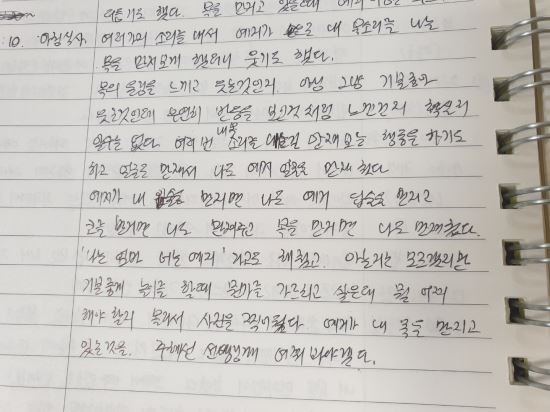 :10. 아침식사. 여러가지 소리를 내서 예지가 내 목소리를 나는
목을 만지도록 했더니 웃기도 했다.
목의 울림을 느끼고 웃는것인지. 아님 그냥 기분좋아
웃는것인데 우연히 반응을 보인것처럼 느낀건지 확실히
알수는 없다. 여러 번 내 목 소리를 만져보는 행동을 하기도
하고 얼굴을 만져서 나도 예지 얼굴을 만져 줬다.
예지가 내 입술을 만지면 나도 예지 입술을 만지고
코를 만지면 나도 만져주고 목을 만지면 나도 만져줬다.
'나는 엄마 너는 예지' 라고도 해줬고. 아는지는 모르겠지만
기분좋게 놀이를 할때 뭔가를 가르치고 싶은데 뭘 어찌
해야 할지 몰라서 사진을 찍어뒀다. 예지가 내 목을 만지고
있는것을. 주혜선 선생님께 여쭤봐야겠다.